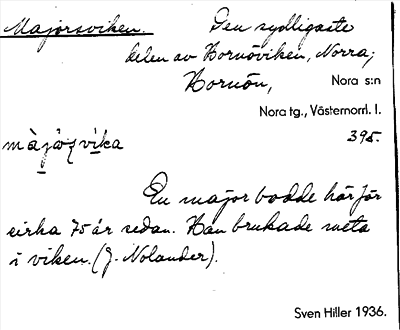 Majorsviken. Den sydligaste
delen av Hornöviken, Norra;
Hornön, Nora s:n
Nora tg., Västernorrl. l.
màjo̱ʂvi̱ka 395.
En major bodde här för
cirka 75 år sedan. Han brukade meta
i viken. (J. Nolander).
Sven Hiller 1936.